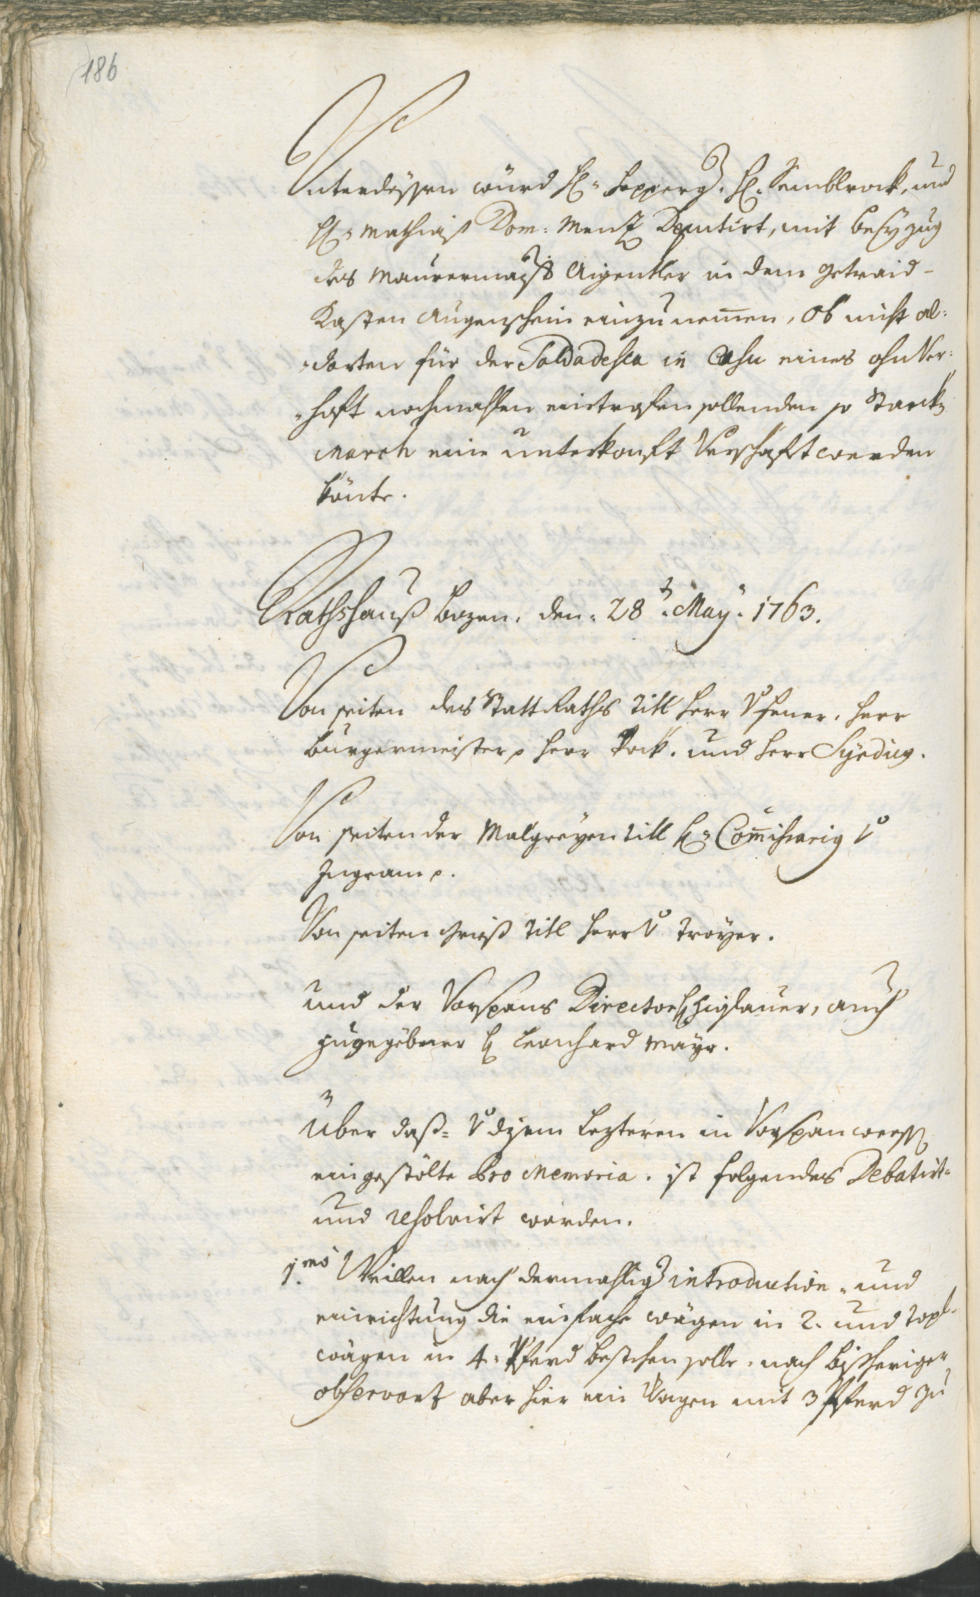 186
Unterdessen würd H: Hepperg: H: Sembleroch, und
H: Mathias Dom: Menz Deputirt, mit beyzug
des Maurermaists Aigentler in dem getraid-
Kasten augenschein einzunemmen, ob nicht al-
dorten für der Soldadesca in Casu eines
haft nochmahlen eintrefen sollenden so starck
March eine unterkonfft verschafft werden
könte.
Rathshauß Bozen. den. 28t. May. 1763.
Von seiten des Statt Raths Titl Herr Herr
Burgermeister Herr und Herr Syndicus.
Von seiten der Malgreyen Titl H: Commissarius v
Ingram
Von seiten Grieß Titl Herr v Troyer.
und der Vorspans Director H auch
zugegebner H Leonhard Mayr.
Über daß v disem lezteren in Vorspanweesen
eingestölte Pro Memoria. ist folgendes Debatirt
und resolvirt worden.
1.mo Weillen nach dermahlig introduction. und
einrichtung die einfache wägen in 2. und dopl-
wägen in 4. Pferd bestehen solle. nach bißheriger
observanz aber hier ein Wagen mit 3 Pferd zu